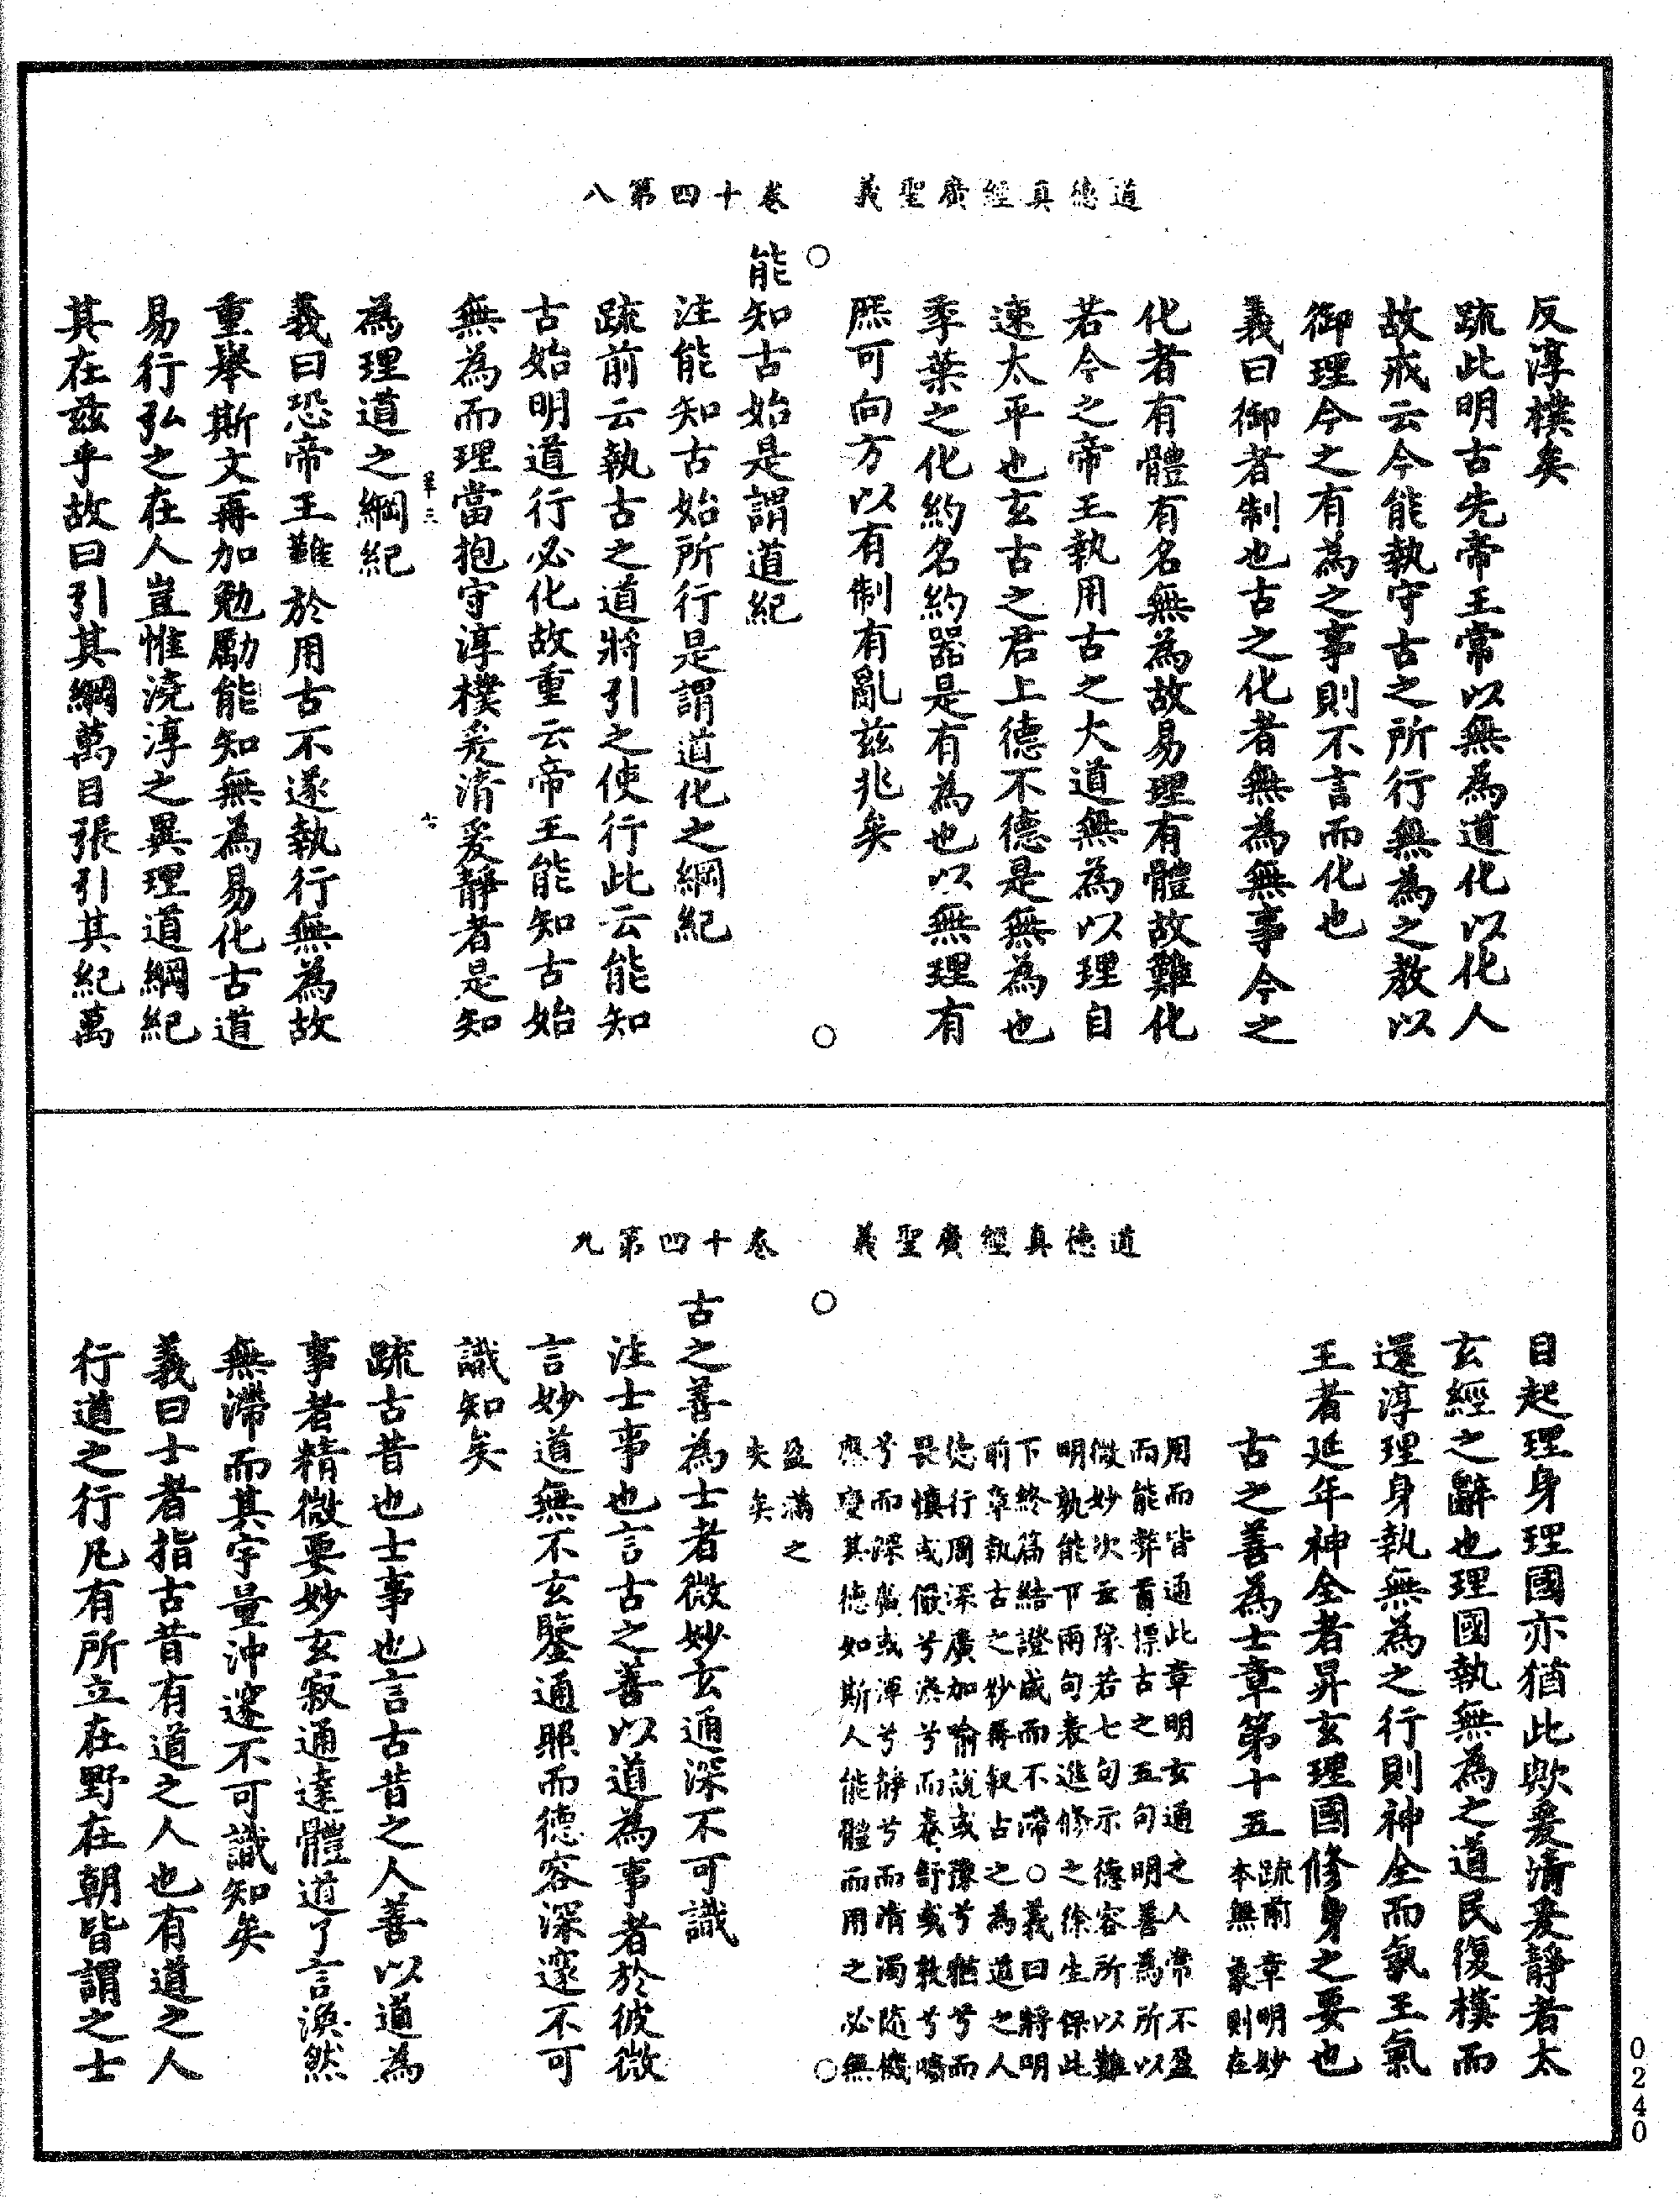 道德真經廣聖義　卷十四第八
反淳樸矣
疏此明古先帝王常以無為道化以化人
故戒云今能執守古之所行無為之教以
御理今之有為之事則不言而化也
義曰御者制也古之化者無為無事今之
化者有體有名無為故易理有體故難化
若今之帝王執用古之大道無為以理自
速太平也玄古之君上德不德是無為也
季葉之化約名約器是有為也以無理有
熈可向方以有制有亂茲兆矣
能知古始是謂道紀
注能知古始所行是謂道化之綱紀
疏前云執古之道將引之使行此云能知
古始明道行必化故重云帝王能知古始
無為而理當抱守淳樸爰清爰靜者是知
為理道之綱紀
義曰恐帝王難於用古不遂執行無為故
重舉斯文再加勉勵能知無為易化古道
易行弘之在人豈惟澆淳之異理道綱紀
其在茲乎故曰引其綱萬目張引其紀萬
道德真經廣聖義　卷十四第九
目起理身理國亦猶此歟爰清爰靜者太
玄經之辭也理國執無為之道民復樸而
還淳理身執無為之行則神全而氣王氣
王者延年神全者昇玄理國修身之要也
古之善為士章第十五
疏前章明妙
本無象則在
用而皆通此章明玄通之人常不盈
而能弊首標古之五句明善為所以
微妙次云豫若七句示德容所以難
明孰能下兩句表進修之徐生保此
下終篇結證成而不滯○義曰將明
前章執古之妙再叙古之為道之人
德行周深廣加喻說或豫兮猶兮而
畏慎或儼兮渙兮而卷舒或敦兮曠
兮而深廣或渾兮靜兮而清濁隨機
應變其德如斯人能體而用之必無
盈滿之
失矣
古之善為士者微妙玄通深不可識
注士事也言古之善以道為事者於彼微
言妙道無不玄鑒通照而德容深邃不可
識知矣
疏古昔也士事也言古昔之人善以道為
事者精微要妙玄寂通達體道了言渙然
無滯而其宇量沖邃不可識知矣
義曰士者指古昔有道之人也有道之人
行道之行凡有所立在野在朝皆謂之士
0240